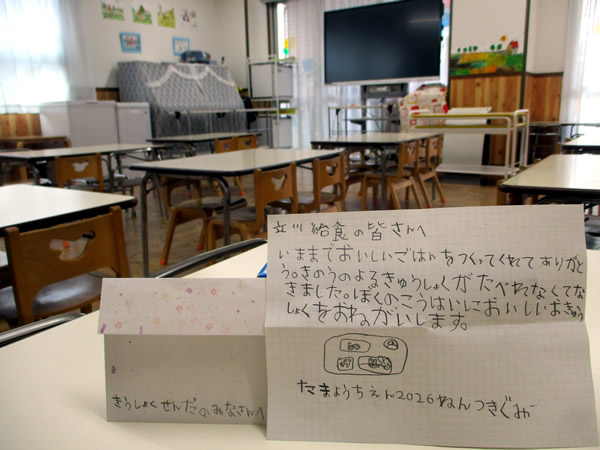 立川給食の皆さんへ
いままでおいしいごはんをつくってくれてありがと
う。きのうのよるきゅうしょくがたべれなくてな
きました。ぼくのこうはいにおいしいおきゅう
しょくをおねがいします。
たまようちえん2026ねんつきぐみ
きゅうしょくせんたーのみなさんへ